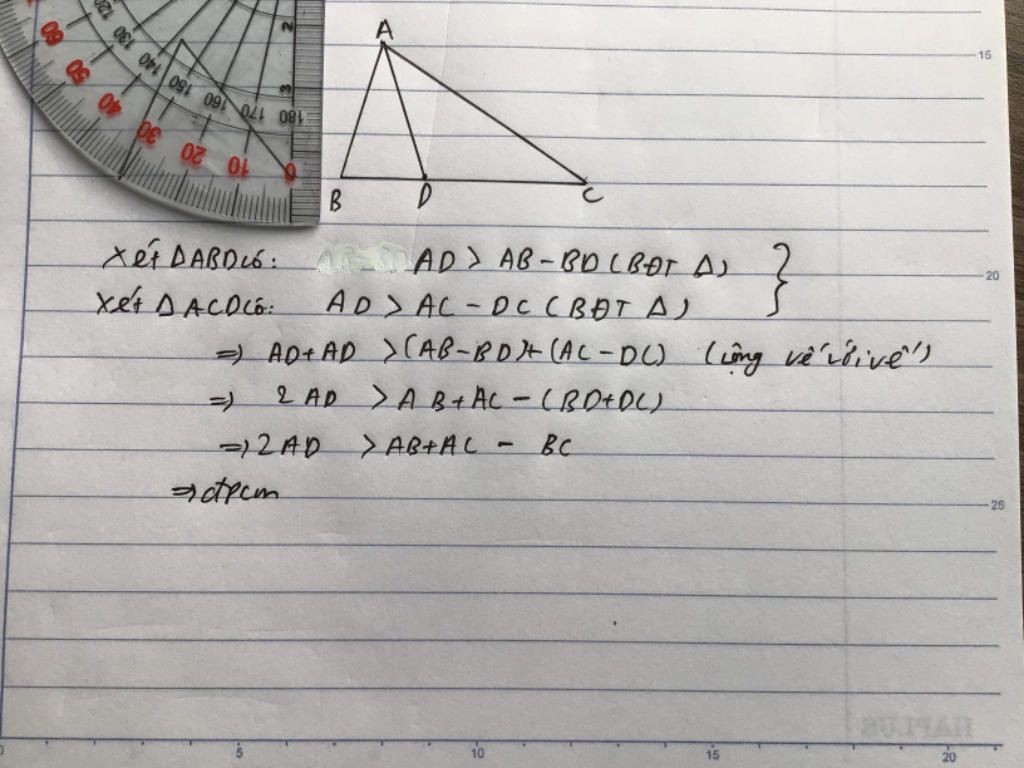 60
50
40
30
20
10
0
120
130
140
150
160
170
180
2
3
A
B
D
C
15
Xét ΔABD có: AD > AB - BD (BĐT Δ)
20
Xét ΔACD có: AD > AC - DC (BĐT Δ)
=> AD+AD > (AB-BD)+(AC-DC) (cộng vế với vế)
=> 2AD > AB+AC-(BD+DC)
=> 2AD > AB+AC - BC
=> đpcm
25
HAPLUS
0 5 10 15 20